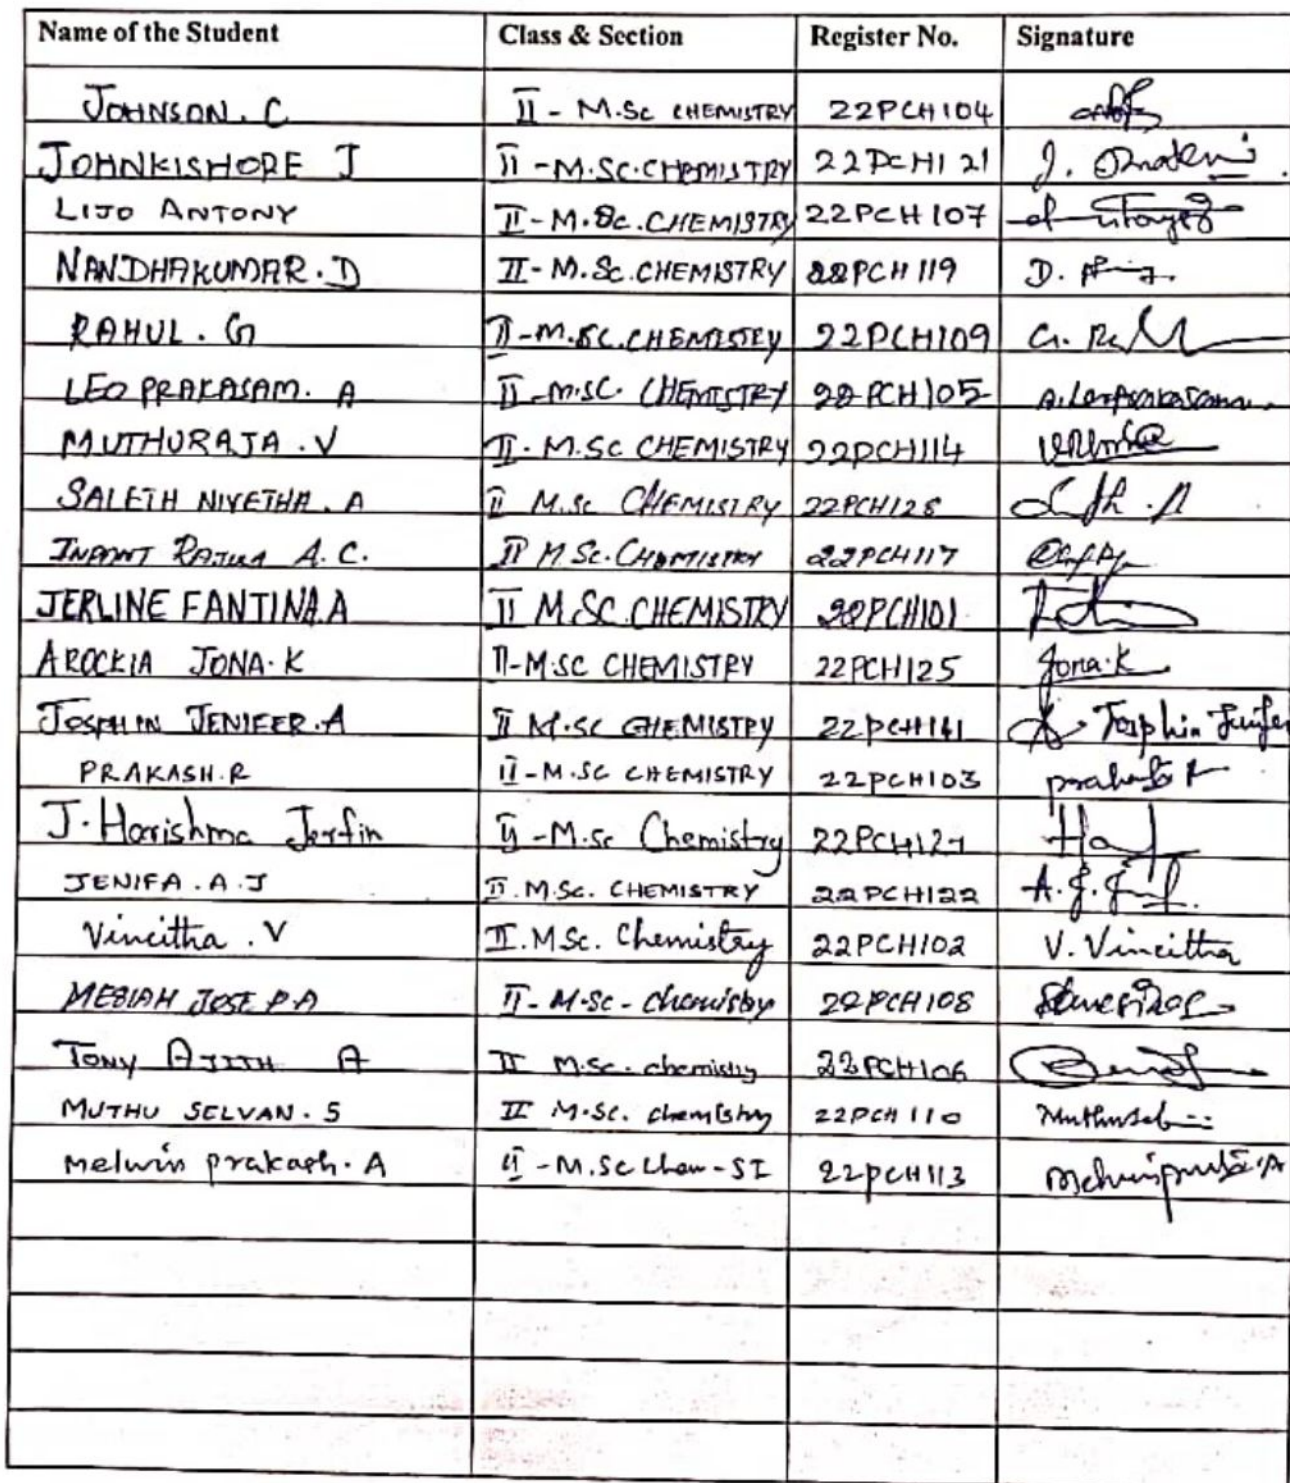 Name of the Student Class & Section Register No. Signature
JOHNSON. C II - M.Sc CHEMISTRY 22PCH104
JOHNKISHORE J II - M.SC.CHEMISTRY 22PCH121 J.
LIJO ANTONY II - M.Sc. CHEMISTRY 22PCH107
NANDHAKUMAR. D II - M.Sc. CHEMISTRY 22PCH119 D.
RAHUL. G II - M.SC. CHEMISTRY 22PCH109 G.
LEO PRAKASAM. A II - M.SC. CHEMISTRY 22PCH105 A. Leoprakasam.
MUTHURAJA. V II. M.SC CHEMISTRY 22PCH114
SALETH NIVETHA. A II M.Sc CHEMISTRY 22PCH128
INFANT A. C. II M.Sc. CHEMISTRY 22PCH117
JERLINE FANTINA.A II M.SC. CHEMISTRY 22PCH101
AROCKIA JONA. K II - M.SC CHEMISTRY 22PCH125 Jona.K
JOSPHIN JENIFER.A II M.SC CHEMISTRY A. Josphin Jenifer
PRAKASH.R II - M.SC CHEMISTRY 22PCH103
J. Harishma Jerfin II - M.Sc Chemistry Ha
JENIFA. A. J II. M.Sc. CHEMISTRY 22PCH122 A. J.
Vincitha. V II. M.Sc. Chemistry 22PCH102 V. Vincitha
MESIAH JOSE P.A II - M.Sc - chemistry 22PCH108
TONY AJITH A II M.Sc. chemistry 22PCH106
MUTHU SELVAN. S II M.Sc. chemistry 22PCH110
Melwin prakash. A II - M.Sc Chem - SI 22PCH113